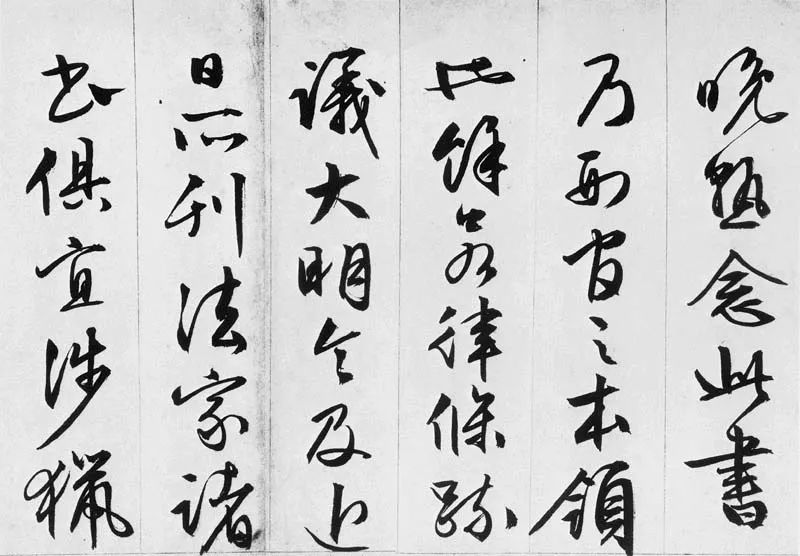 晚熟念此書
乃刑官之本領
其餘若律條疏
議大明令及近
日所刊法家諸
書俱宜涉獵